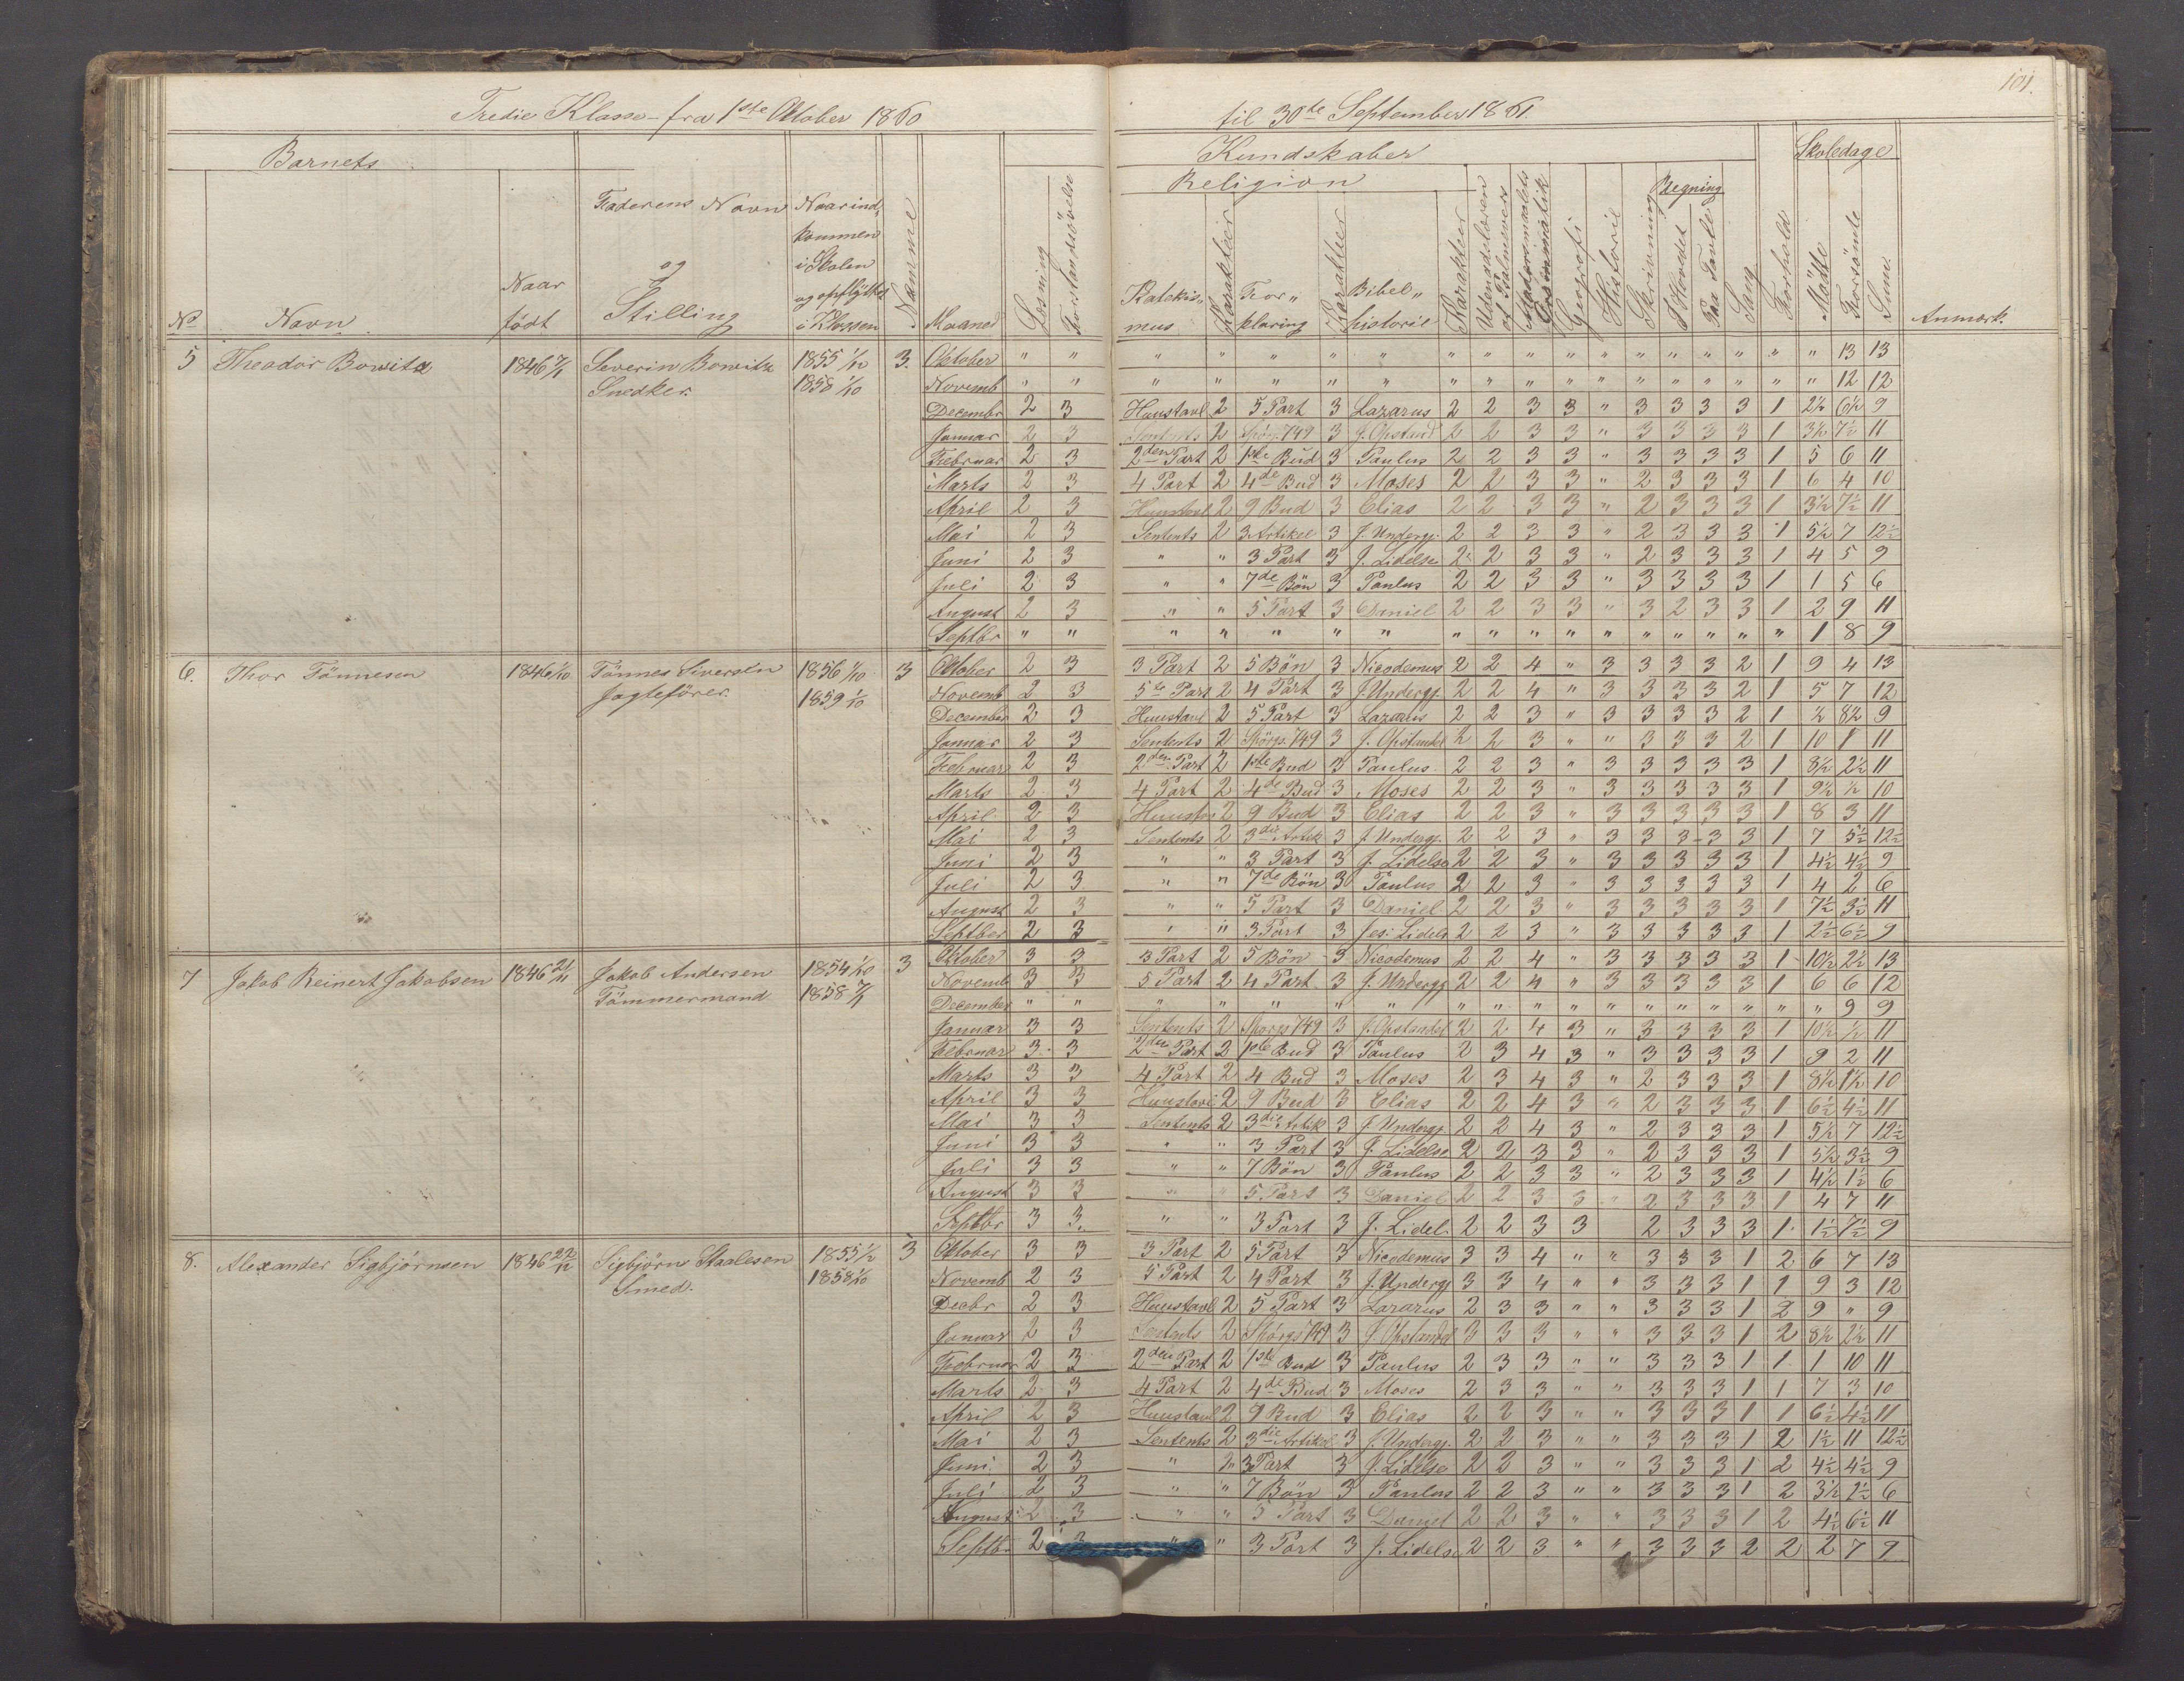 101.
Tredie Klasse fra 1ste Oktober 1860 til 30te September 1861.
Barnets Kundskaber Skoledage
Religion Regning
No Navn Naar födt Faderens Navn og Stilling Naar indkommen i Skolen og opflyttet i Klassen Nummer Maaned Læsning Forstandsövelse Katekismus Karakter Forklaring Karakter Bibelhistorie Karakter Udenadslæren af Psalmevers Modersmaalets Grammatik Geografi Historie Skrivning I Hovedet Paa Tavle Sang Forhold Mödte Forsömte Sum. Anmærk.
5 Theodor Bowitz 1846 Severin Bowitz 1855 1/10 3. Oktober " " " " " " " " " " " " " " " " " " " 13 13
Snedker. 1858 1/10 Novemb " " " " " " " " " " " " " " " " " " " 12 12
Decembr 2 3 Huustavl 2 5 Part 3 Lazarus 2 2 3 3 " 3 3 3 3 1 2½ 6½ 9
Januar 2 3 Sentents 2 Spörg. 749 3 J. Opstand 2 2 3 3 " 3 3 3 3 1 3½ 7½ 11
Februar 2 3 2den Part 2 1ste Bud 3 Paulus 2 2 3 3 " 3 3 3 3 1 5 6 11
Marts 2 3 4 Part 2 4de Bud 3 Moses 2 2 3 3 " 2 3 3 3 1 6 4 10
April 2 3 Huustavl 2 9 Bud 3 Elias 2 2 3 3 " 2 3 3 3 1 3½ 7½ 11
Mai 2 3 Sentents 2 3 Artikel 3 J. Undergj. 2 2 3 3 " 2 3 3 3 1 5½ 7 12½
Juni 2 3 " " 3 Part 3 J. Lidelse 2 2 3 3 " 2 3 3 3 1 4 5 9
Juli 2 3 " " 7de Bön 3 Paulus 2 2 3 3 " 3 3 3 3 1 1 5 6
August 2 3 " " 5 Part 3 Daniel 2 2 3 3 " 3 2 3 3 1 2 9 11
Septbr " " " " " " " " " " " " " " " " " " 1 8 9
6. Thor Tönnesen 1846 1/10 Tönnes Siversen 1856 1/10 3 Oktober 2 3 3 Part 2 5 Bön 3 Nicodemus 2 2 4 " 3 3 3 3 2 1 9 4 13
Jagtefører. 1859 1/10 Novemb 2 3 5te Part 2 4 Part 3 J. Undergj. 2 2 4 " 3 3 3 3 2 1 5 7 12
December 2 3 Huustavl 2 5 Part 3 Lazarus 2 2 3 " 3 3 3 3 2 1 ½ 8½ 9
Januar 2 3 Sentents 2 Spörgs. 749 3 J. Opstandel 2 2 3 " " 3 3 3 2 1 10 1 11
Februar 2 3 2den Part 2 1ste Bud 3 Paulus 2 2 3 " 3 3 3 3 3 1 8½ 2½ 11
Marts 2 3 4 Part 2 4de Bud 3 Moses 2 2 3 " 3 3 3 3 3 1 9½ ½ 10
April 2 3 Huustav 2 9 Bud 3 Elias 2 2 3 " 3 3 3 3 3 1 8 3 11
Mai 2 3 Sentents 2 3die Artik 3 J. Undergj. 2 2 3 " 3 3 3 3 3 1 7 5½ 12½
Juni 2 3 " " 3 Part 3 J. Lidelse 2 2 3 " 3 3 3 3 3 1 4½ 4½ 9
Juli 2 3 " " 7de Bön 3 Paulus 2 2 3 " 3 3 3 3 3 1 4 2 6
August 2 3 " " 5 Part 3 Daniel 2 2 3 " 3 3 3 3 3 1 7½ 3½ 11
Septber 2 3 " " 3 Part 3 Jes: Lidels 2 2 3 " 3 3 3 3 3 1 2½ 6½ 9
7 Jakob Reinert Jakobsen 1846 21/11 Jakob Andersen 1854 1/10 3 Oktober 3 3 3 Part 2 5 Bön 3 Nicodemus 2 2 4 " 3 3 3 3 3 1 10½ 2½ 13
Tömmermand 1858 Novemb 3 3 5 Part 2 4 Part 3 J. Undergj 2 2 4 " 3 3 3 3 3 1 6 6 12
December " " " " " " " " " " " " " " " " " " " 9 9
Januar 3 3 Sentents 2 Spörgs 749 3 J. Opstandel 2 2 4 3 " 3 3 3 3 1 10½ ½ 11
Februar 3 3 2den Part 2 1ste Bud 3 Paulus 2 3 4 3 " 3 3 3 3 1 9 2 11
Marts 3 3 4 Part 2 4 Bud 3 Moses 2 3 4 3 " 2 3 3 3 1 8½ 1½ 10
April 3 3 Huustavl 2 9 Bud 3 Elias 2 2 4 3 " 2 3 3 3 1 6½ 4½ 11
Mai 3 3 Sentents 2 3die Artik 3 J. Undergj. 2 2 4 3 " 2 3 3 3 1 5½ 7 12½
Juni 3 3 " " 3 Part 3 J. Lidelse 2 2 3 3 " 2 3 3 3 1 5½ 3½ 9
Juli 3 3 " " 7 Bön 3 Paulus 2 2 3 3 " 2 3 3 3 1 4½ 1½ 6
August 3 3 " " 5 Part 3 Daniel 2 2 3 3 " 2 3 3 3 1 4 7 11
Septbr 3 3. " " 3 Part 3 J. Lidel. 2 2 3 3 2 3 3 3 1 1½ 7½ 9
8. Alexander Sigbjørnsen 1846 22/12 Sigbjörn Staalesen 1855 1/2 3 Oktober 3 3 3 Part 2 5 Part 3 Nicodemus 3 3 4 " " 3 3 3 1 2 6 7 13
Smed. 1858 1/10 Novemb 2 3 5 Part 2 4 Part 3 J. Undergj 3 3 4 " " 3 3 3 1 1 9 3 12
Decbr 2 3 Huustavl 2 5 Part 3 Lazarus 2 3 3 " " 3 3 3 1 2 9 " 9
Januar 2 3 Sentents 2 Spörgs 749 3 J. Opstandel 3 3 3 " " 3 3 3 1 2 8½ 2½ 11
Februar 2 3 2den Part 2 1ste Bud 3 Paulus 2 3 3 " " 3 3 3 1 1 1 10 11
Marts 2 3 4 Part 2 4de Bud 3 Moses 2 3 3 " " 3 3 3 1 1 7 3 10
April 2 3 Huustavl 2 9 Bud 3 Elias 2 2 3 " " 3 3 3 1 1 6½ 4½ 11
Mai 2 3 Sentents 2 3die Artikel 3 J. Undergj. 2 2 3 " " 3 3 3 1 2 1½ 11 12½
Juni 2 3 " " 3 Part 3 J. Lidelse 2 2 3 " " 3 3 3 1 2 4½ 4½ 9
Juli 2 3 " " 7 Bön 3 Paulus 2 2 3 " " 3 3 3 1 2 3½ 2½ 6
August 2 3 " " 5 Part 3 Daniel 2 2 3 " " 3 3 3 1 2 4½ 6½ 11
Septb. 2 3 " " 3 Part 3 J. Lidelse 2 2 3 " " 3 3 3 2 2 2 7 9